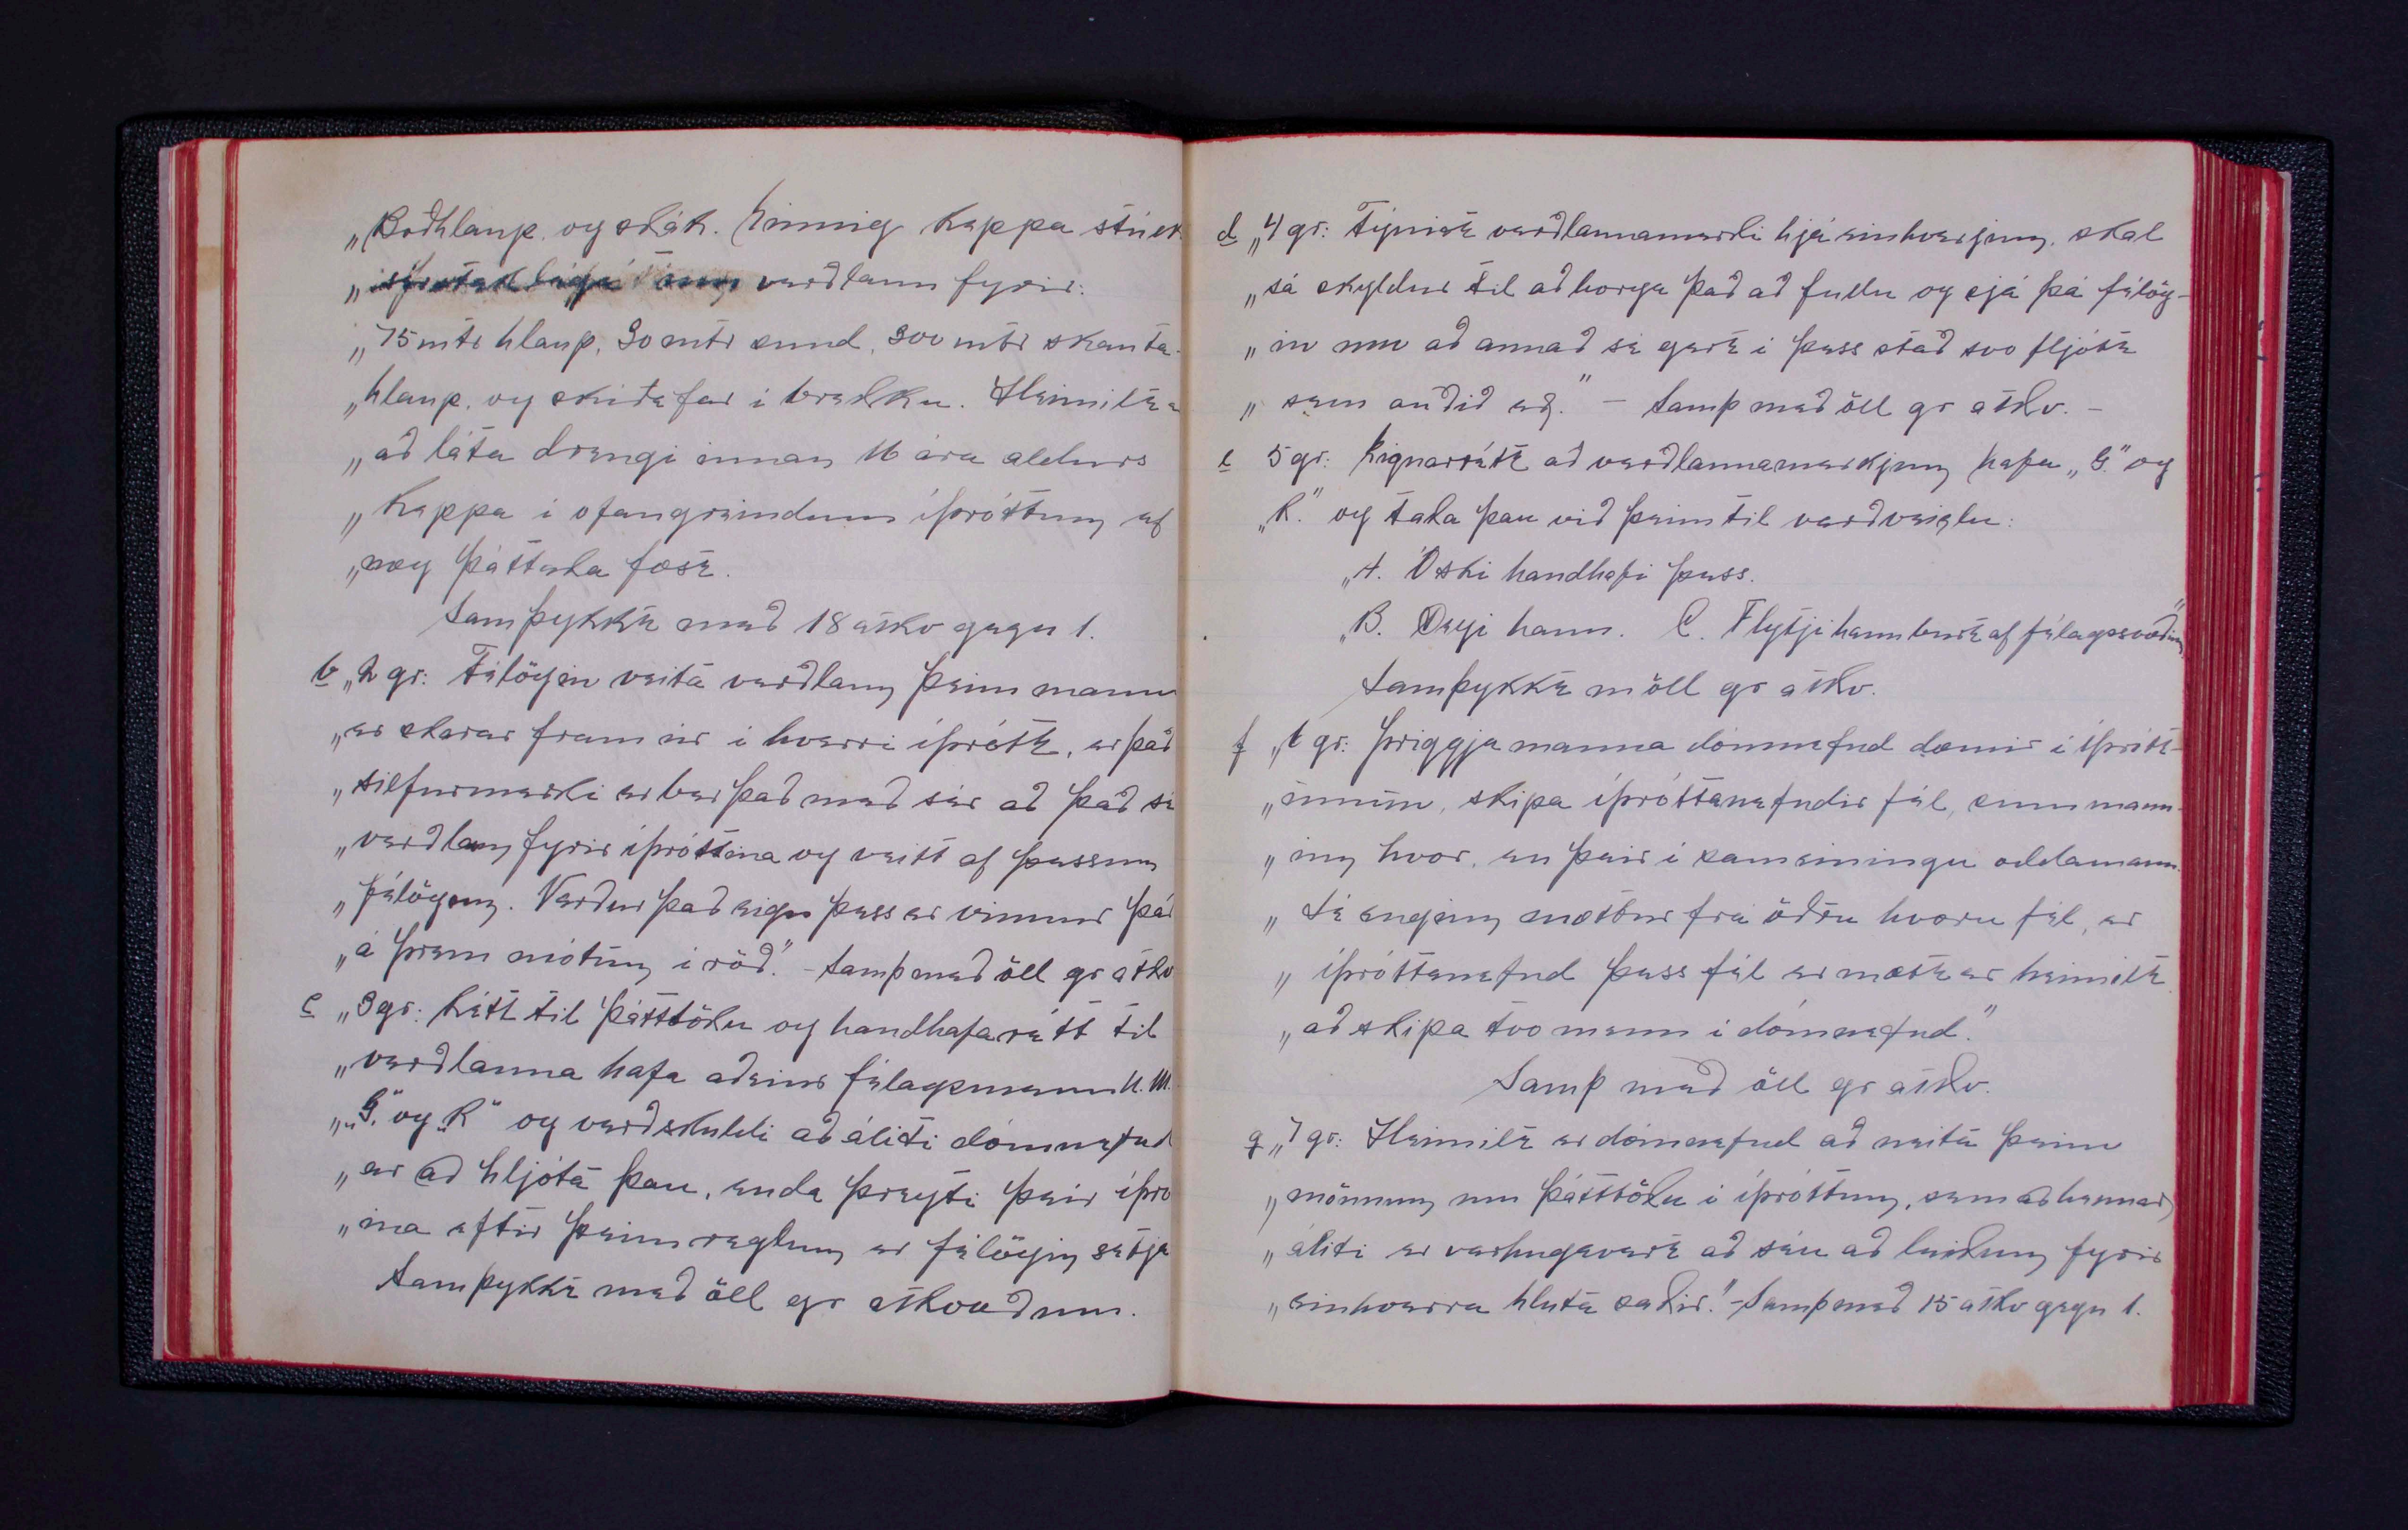 „Boðhlaup og skák. Einnig keppa stúlk
„ verðlaun fyrir:
„75 mtr hlaup, 30 mtr sund, 300 mtr skauta-
„hlaup, og skíðafar í brekku. Heimilt e
„að láta drengi innan 16 ára aldurs
„keppa í ofangreindum íþróttum ef
„næg þátttaka fæst.
Samþykkt með 18 atkv gegn 1.
b „2 gr: Félögin veita verðlaun þeim manni
„er skarar fram úr í hverri íþrótt, er það
„silfurmerki er ber það með sér að það sé
„verðlaun fyrir íþróttina og veitt af þessum
„félögum. Verður það eign þess er vinnur það
„á þrem mótum í röð.” - Samþ með öll gr atkv
c „3 gr: Rétt til þátttöku og handhafarétt til
„verðlauna hafa aðeins félagsmenn U.M.
„„G.” og „R” og verðskuldi að áliti dómnefnd
„er að hljóta þau, enda þreyti þeir íþró
„ina eftir þeim reglum er félögin setja
Samþykkt með öll gr atkvæðum.
d „4 gr: Týnist verðlaunamerki hjá einhverjum, skal
„sá skyldur til að borga það að fullu og sjá þá félög-
„in um að annað sé gert í þess stað svo fljótt
„sem auðið er.” - Samþ með öll gr atkv. -
e 5 gr: Eignarrétt að verðlaunamerkjum hafa „G.” og
„R.” og taka þau við þeim til varðveislu:
„A. Óski handhafi þess.
„B. Deyi hann. C. Flytji hann burt af félagssvæðinu”
Samþykkt m öll gr atkv.
f „6 gr: Þriggja manna dómnefnd dæmir í íþrótt-
„unum, skipa íþróttanefndir fél, einn mann-
„inn hvor, en þeir í sameiningu oddamann.
„Sé enginn mættur frá öðru hvoru fél, er
„íþróttanefnd þess fél er mætt er heimilt
„að skipa tvo menn í dómnefnd.”
Samþ með öll gr atkv.
g „7 gr: Heimilt er dómnefnd að neita þeim
„mönnum um þátttöku í íþróttum, sem að hennar
„áliti er varhugavert að séu að leikum fyrir
„einhverra hluta sakir.” - Samþ með 15 atkv gegn 1.